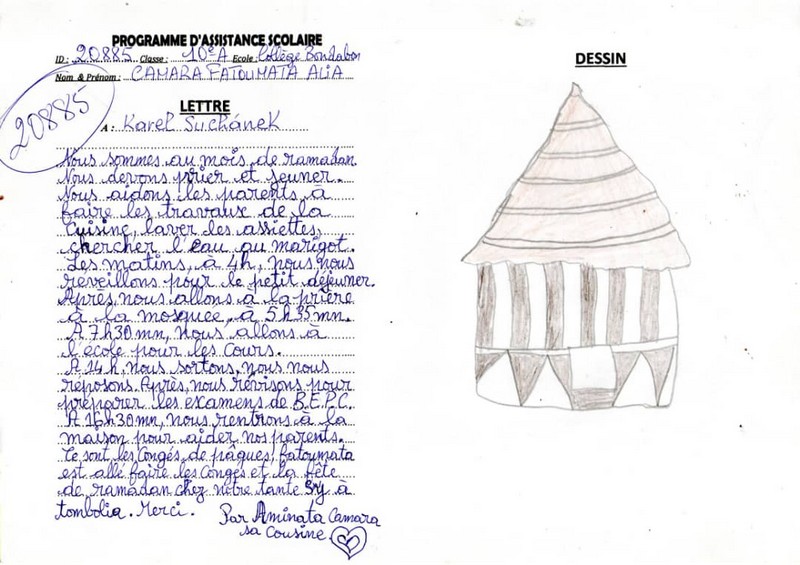 PROGRAMME D'ASSISTANCE SCOLAIRE
ID : 20885 Classe : 10è A Ecole Collège Bondabon
Nom & Prénom : CAMARA FATOUMATA ALIA
20885
LETTRE
A : Karel Suchánek
Nous sommes au mois de ramadan
Nous devons prier et jeuner.
Nous aidons les parents à
faire les travaux de la
Cuisine, laver les assiettes,
chercher l'eau au marigot.
Les matins, à 4h, nous nous
reveillons pour le petit déjeuner.
Après, nous allons à la prière
à la mosquée, à 5h35mn.
A 7h30mn, Nous allons à
l'école pour les Cours.
A 14h, Nous sortons, nous nous
réposons. Après, nous révisons pour
préparer les examens de B.E.P.C.
A 16h30mn, nous rentrons à la
maison pour aider nos parents.
Ce sont les Congés de pâques, fatoumata
est allé faire les Congés et la fête
de ramadan chez notre tante Sy à
tombolia. Merci.
Par Aminata Camara
sa Cousine
DESSIN